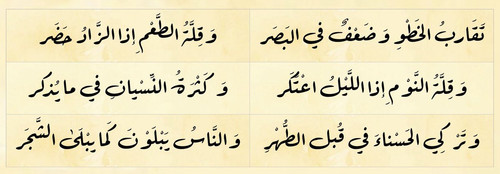 تَقَارِبُ الخَطْوِ وَضَعْفٌ في البَصَر وَقِلَّةُ الطَّعْمِ إذا الزَّادُ حَضَر
وَقِلَّةُ النَّوْمِ إذا اللَّيْلُ اعْتَكَر وَكَثْرَةُ النِّسْيانِ في ما يُذكر
وَتَرْكِي الحَسْناءَ في قُبل الطُّهْرِ وَالنَّاسُ يَبْلَوْنَ كَما يَبْلَىٰ الشَّجَر